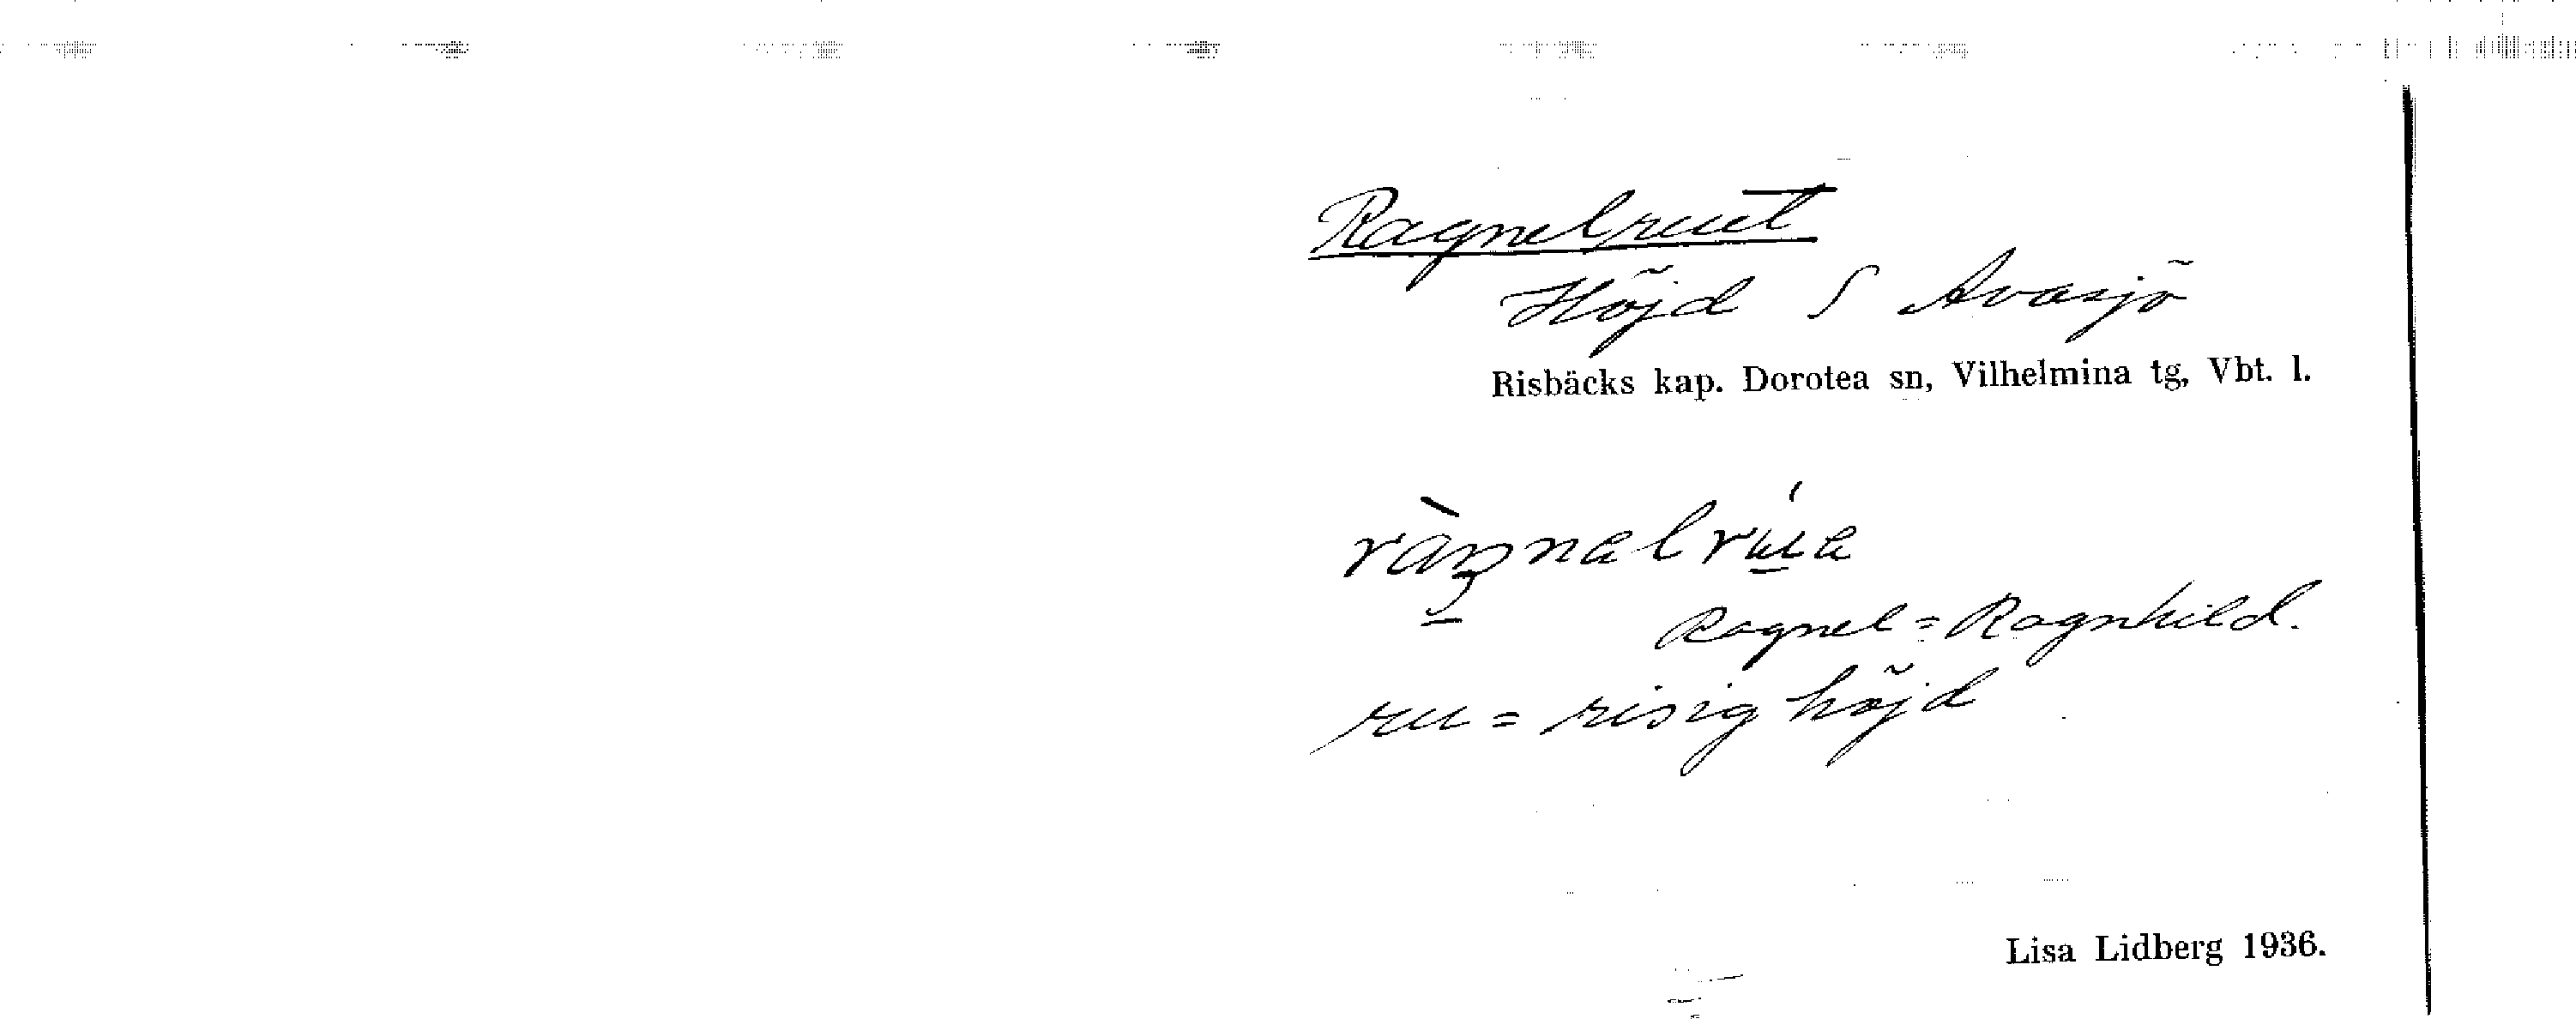 Ragnelruet
Höjd S Avasjö
Risbäcks kap. Dorotea sn, Vilhelmina tg, Vbt. l.
Ragnel = Ragnhild.
ru = risig höjd
Lisa Lidberg 1936.